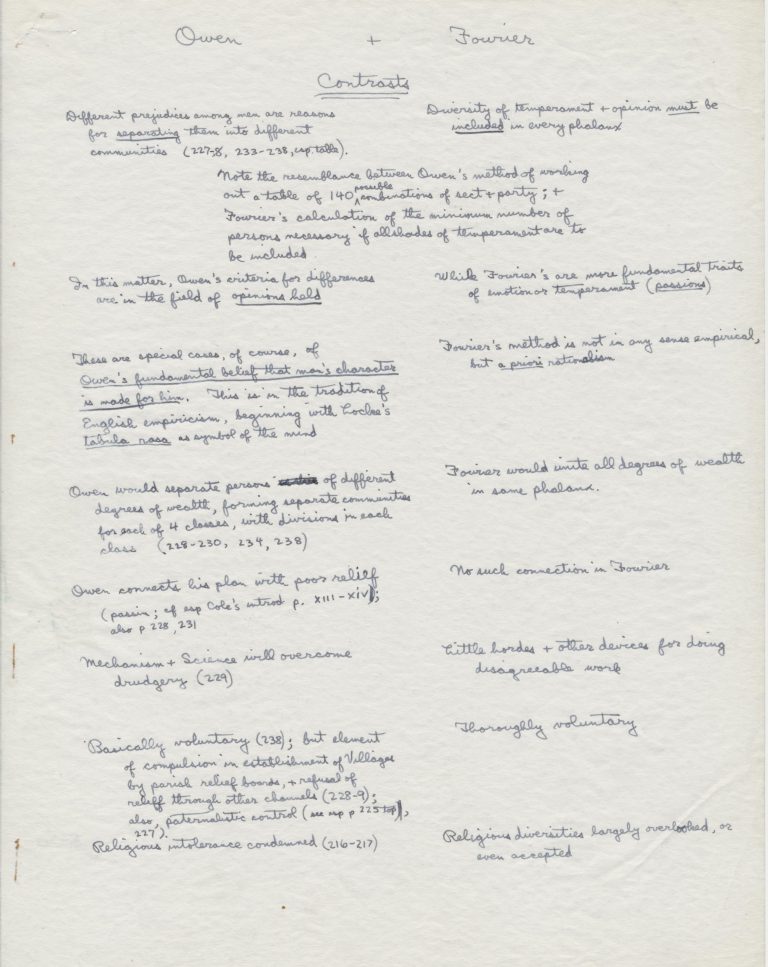 Owen + Fourier
Contrasts
Different prejudices among men are reasons
for separating them into different
communities (227-8, 233-238, esp. table).
Diversity of temperament + opinion must be
included in every phalanx
Note the resemblance between Owen's method of working
out a table of 140 possible combinations of sect + party; +
Fourier's calculation of the minimum number of
persons necessary if all shades of temperament are to
be included
In this matter, Owen's criteria for differences
are in the field of opinions held
While Fourier's are more fundamental traits
of emotion or temperament (passions)
These are special cases, of course, of
Owen's fundamental belief that man's character
is made for him. This is in the tradition of
English empiricism, beginning with Locke's
tabula rasa as symbol of the mind
Fourier's method is not in any sense empirical,
but a priori rationalism
Owen would separate persons of different
degrees of wealth, forming separate communities
for each of 4 classes, with divisions in each
class (228-230, 234, 238)
Fourier would unite all degrees of wealth
in same phalanx.
Owen connects his plan with poor relief
(passim; cf esp Cole's introd p. XIII-XIV);
also p 228, 231
No such connection in Fourier
Mechanism + Science will overcome
drudgery (229)
Little hordes + other devices for doing
disagreeable work
Basically voluntary (238); but element
of compulsion in establishment of Villages
by parish relief boards, + refusal of
relief through other channels (228-9);
also, paternalistic control (see esp p 225 top),
227).
Thoroughly voluntary
Religious intolerance condemned (216-217)
Religious diversities largely overlooked, or
even accepted